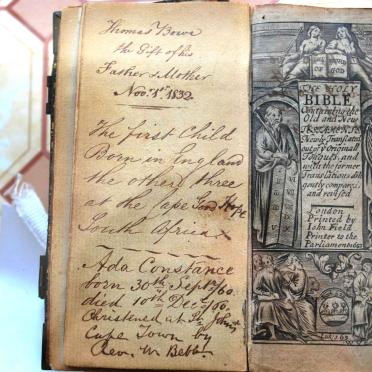 Thomas Bowe
the Gift of his
Father & Mother
Novr. 1st 1832.
The first Child
Born in England
the other three
at the Cape Good Hope
South Africa
Ada Constance
born 30th Septr/60.
died 10th Decr/60.
Christened at St. Johns
Cape Town by
Rev. W. Bebb.
WORD
OF GOD
THE HOLY
BIBLE
Containing the
Old and New
TESTAMENTS
Newly Translated
out of ye Originall
Tongues, and
with the former
Translations dili
gently compared
and revised
London
Printed by
Iohn Field
Printer to the
Parliament